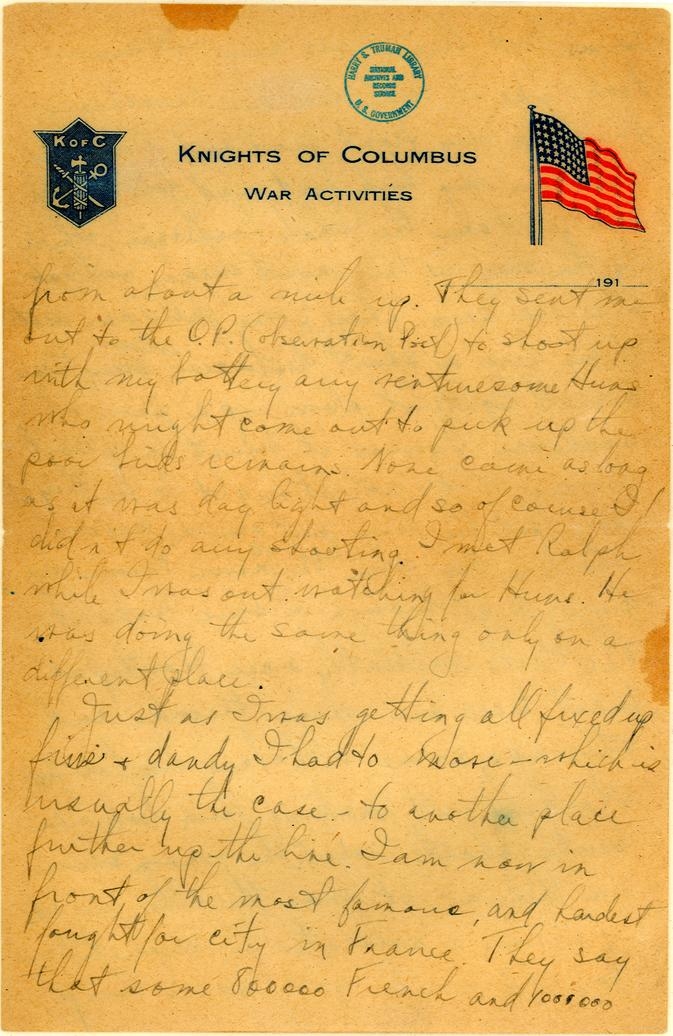 HARRY S. TRUMAN LIBRARY
NATIONAL
ARCHIVES AND
RECORDS
SERVICE
U. S. GOVERNMENT
K OF C
KNIGHTS OF COLUMBUS
WAR ACTIVITIES
191
from about a mile up. They sent me
out to the O.P. (observation Post) to shoot up
with my battery any venturesome Huns
who might come out to pick up the
poor birds remains. None came as long
as it was day light and so of course I
didn't do any shooting. I met Ralph
while I was out watching for Huns. He
was doing the same thing only on a
different place.
Just as I was getting all fixed up
fine + dandy I had to move - which is
usually the case - to another place
further up the line. I am now in
front of the most famous, and hardest
fought for city in France. They say
that some 800000 French and 1000000